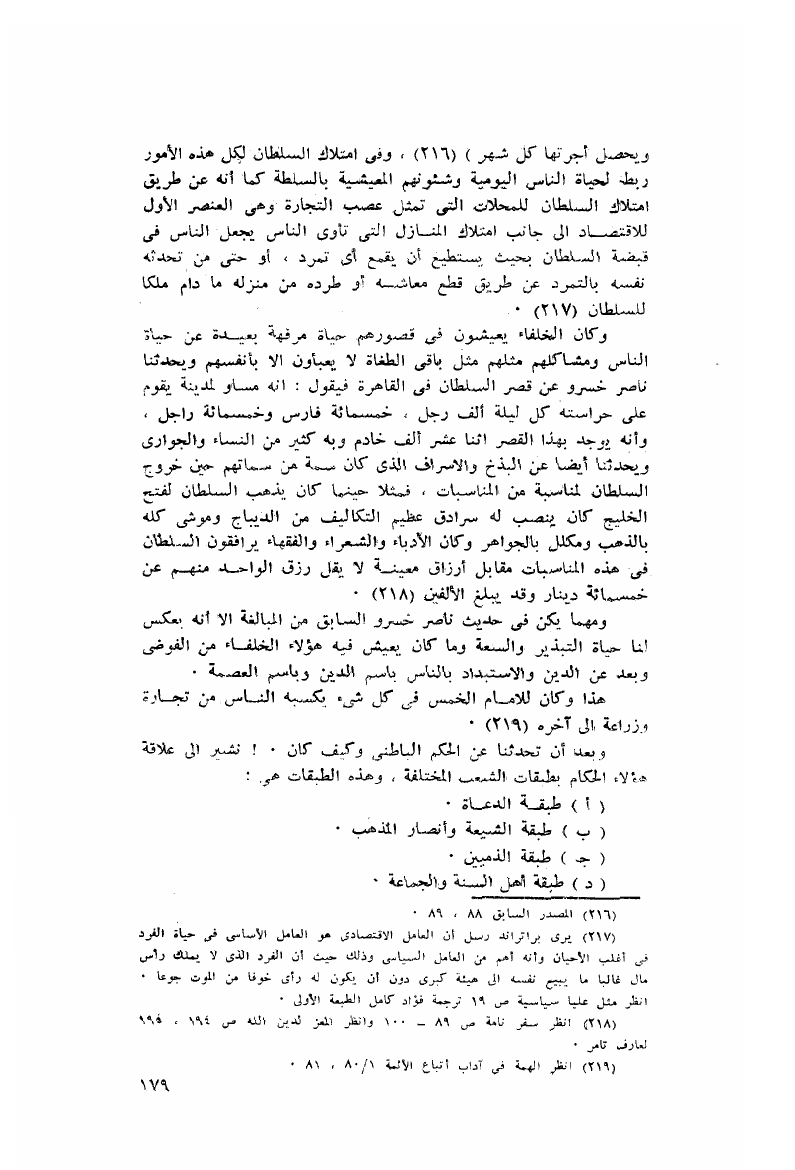 ويحصل أجرتها كل شهر ) (٢١٦) ، وفى امتلاك السلطان لكل هذه الأمور
ربط لحياة الناس اليومية وشئونهم المعيشية بالسلطة كما أنه عن طريق
امتلاك السلطان للمحلات التى تمثل عصب التجارة وهى العنصر الأول
للاقتصاد الى جانب امتلاك المنازل التى تأوى الناس يجعل الناس فى
قبضة السلطان بحيث يستطيع أن يقمع أى تمرد ، أو حتى من تحدثه
نفسه بالتمرد عن طريق قطع معاشه أو طرده من منزله ما دام ملكا
للسلطان (٢١٧) ٠
وكان الخلفاء يعيشون فى قصورهم حياة مرفهة بعيدة عن حياة
الناس ومشاكلهم مثلهم مثل باقى الطغاة لا يعبأون الا بأنفسهم ويحدثنا
ناصر خسرو عن قصر السلطان فى القاهرة فيقول : انه مساو لمدينة يقوم
على حراسته كل ليلة ألف رجل ، خمسمائة فارس وخمسمائة راجل ،
وأنه يوجد بهذا القصر اثنا عشر ألف خادم وبه كثير من النساء والجوارى
ويحدثنا أيضا عن البذخ والاسراف الذى كان سمة من سماتهم حين خروج
السلطان لمناسبة من المناسبات ، فمثلا حينما كان يذهب السلطان لفتح
الخليج كان ينصب له سرادق عظيم التكاليف من الديباج وموشى كله
بالذهب ومكلل بالجواهر وكان الأدباء والشعراء والفقهاء يرافقون السلطان
فى هذه المناسبات مقابل أرزاق معينة لا يقل رزق الواحد منهم عن
خمسمائة دينار وقد يبلغ الألفين (٢١٨) ٠
ومهما يكن فى حديث ناصر خسرو السابق من المبالغة الا أنه يعكس
لنا حياة التبذير والسعة وما كان يعيش فيه هؤلاء الخلفاء من الفوضى
وبعد عن الدين والاستبداد بالناس باسم الدين وباسم العصمة ٠
هذا وكان للامام الخمس فى كل شىء يكسبه الناس من تجارة
وزراعة الى آخره (٢١٩) ٠
وبعد أن تحدثنا عن الحكم الباطنى وكيف كان ٠ ! نشير الى علاقة
هؤلاء الحكام بطبقات الشعب المختلفة ، وهذه الطبقات هى :
( أ ) طبقة الدعاة ٠
( ب ) طبقة الشيعة وأنصار المذهب ٠
( جـ ) طبقة الذميين ٠
( د ) طبقة أهل السنة والجماعة ٠
(٢١٦) المصدر السابق ٨٨ ، ٨٩ ٠
(٢١٧) يرى براتراند رسل أن العامل الاقتصادى هو العامل الأساسى فى حياة الفرد
فى أغلب الأحيان وأنه أهم من العامل السياسى وذلك حيث أن الفرد الذى لا يملك رأس
مال غالبا ما يبيع نفسه الى هيئة كبرى دون أن يكون له رأى خوفا من الموت جوعا ٠
انظر مثل عليا سياسية ص ١٩ ترجمة فؤاد كامل الطبعة الأولى ٠
(٢١٨) انظر سفر نامة ص ٨٩ – ١٠٠ وانظر المعز لدين الله ص ١٩٤ ، ١٩٥
لعارف تامر ٠
(٢١٩) انظر الهمة فى آداب أتباع الأئمة ٨٠/١ ، ٨١ ٠
١٧٩